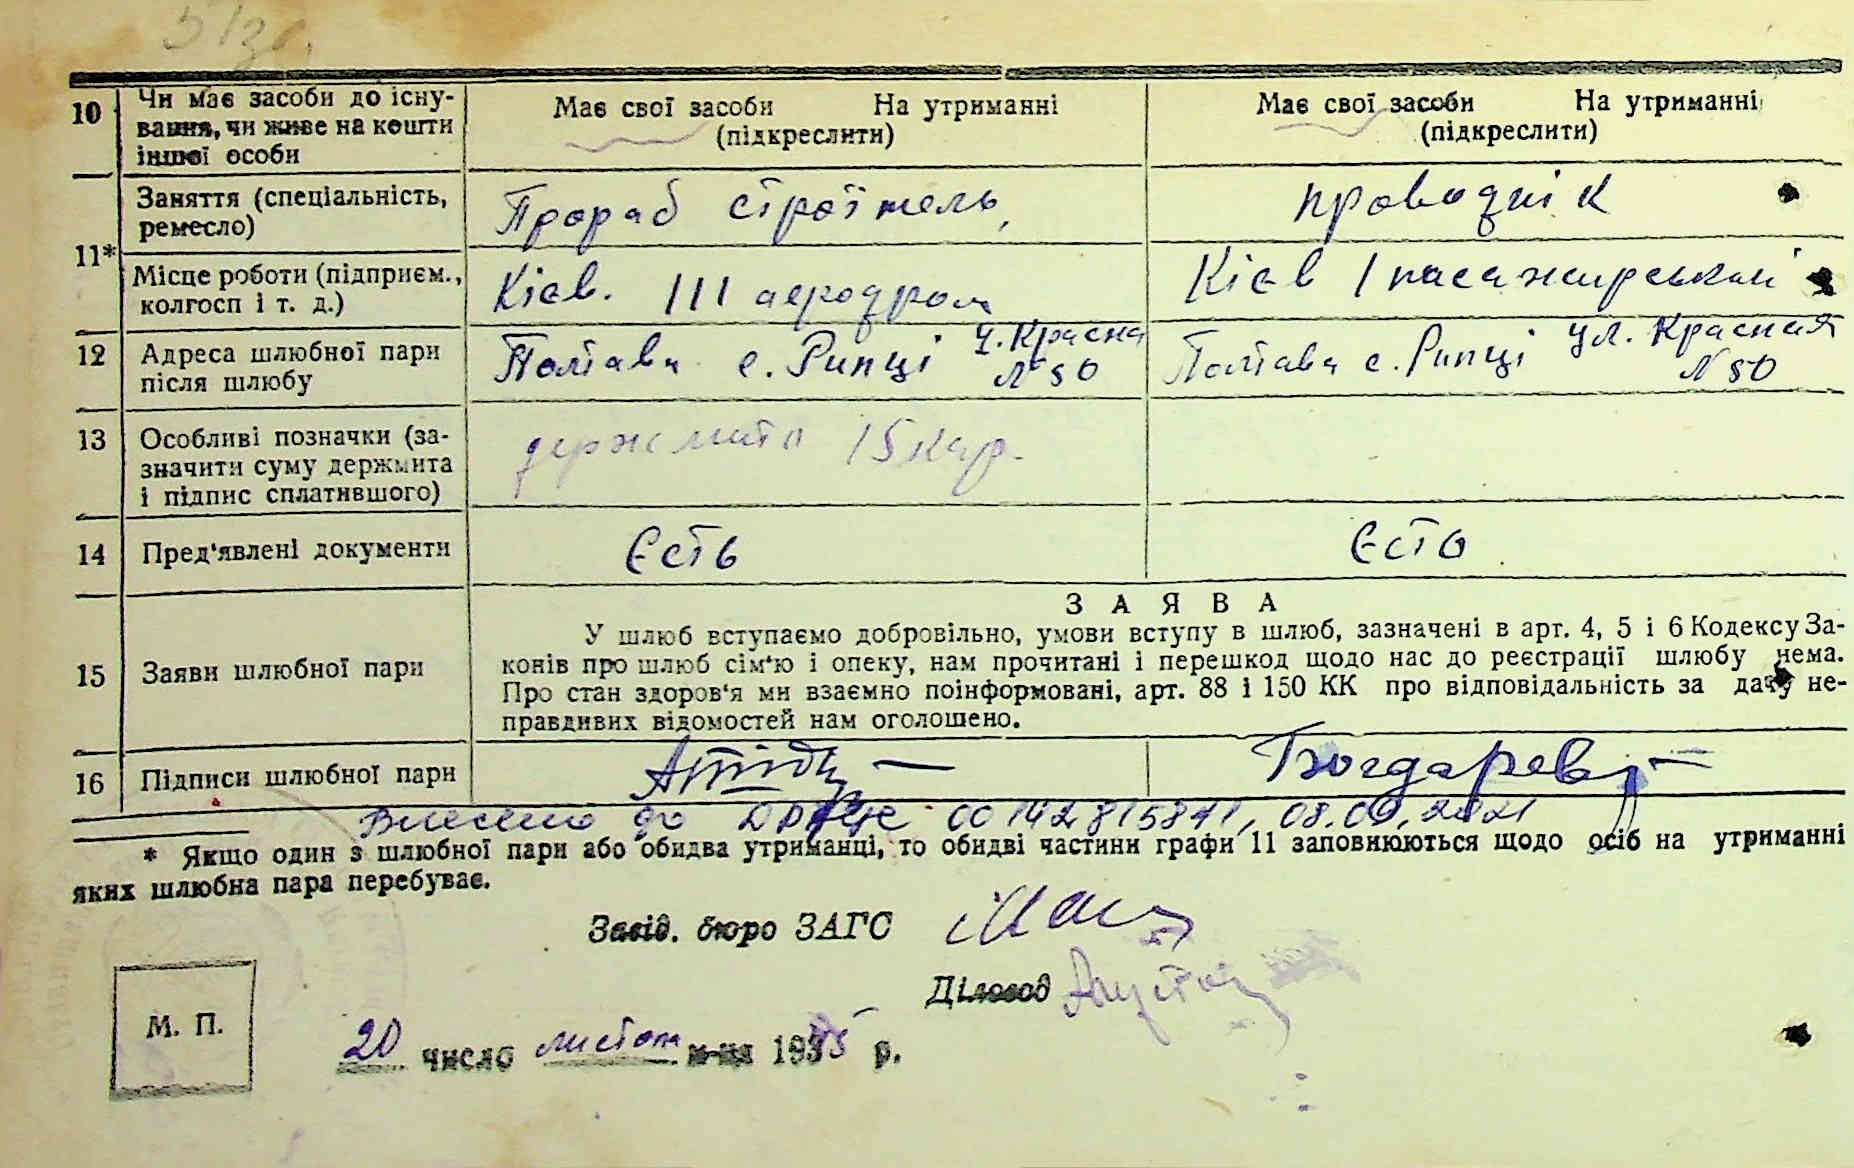 10 Чи має засоби до існу-
вання, чи живе на кошти
іншої особи
Має свої засоби На утриманні
(підкреслити)
Має свої засоби На утриманні
(підкреслити)
11*
Заняття (спеціальність,
ремесло)
Прораб строїтель,
проводнік
Місце роботи (підприєм.,
колгосп і т. д.)
Кієв. III аеродром
Кієв І пасажирський
12 Адреса шлюбної пари
після шлюбу
Полтава с. Рипці у. Красна
№ 50
Полтава с. Рипці ул. Красная
№ 50
13 Особливі позначки (за-
значити суму держмита
і підпис сплатившого)
держмита 15 кар.
14 Пред'явлені документи
Єсть
Єсть
15 Заяви шлюбної пари
ЗАЯВА
У шлюб вступаємо добровільно, умови вступу в шлюб, зазначені в арт. 4, 5 і 6 Кодексу За-
конів про шлюб сім'ю і опеку, нам прочитані і перешкод щодо нас до реєстрації шлюбу нема.
Про стан здоров'я ми взаємно поінформовані, арт. 88 і 150 КК про відповідальність за дачу не-
правдивих відомостей нам оголошено.
16 Підписи шлюбної пари
Внесено до ДРАЦС 00142815841, 08.09.2021
* Якщо один з шлюбної пари або обидва утриманці, то обидві частини графи 11 заповнюються щодо осіб на утриманні
яких шлюбна пара перебуває.
Завід. бюро ЗАГС
Діловод
М. П.
20 число листоп м-ця 1945 р.